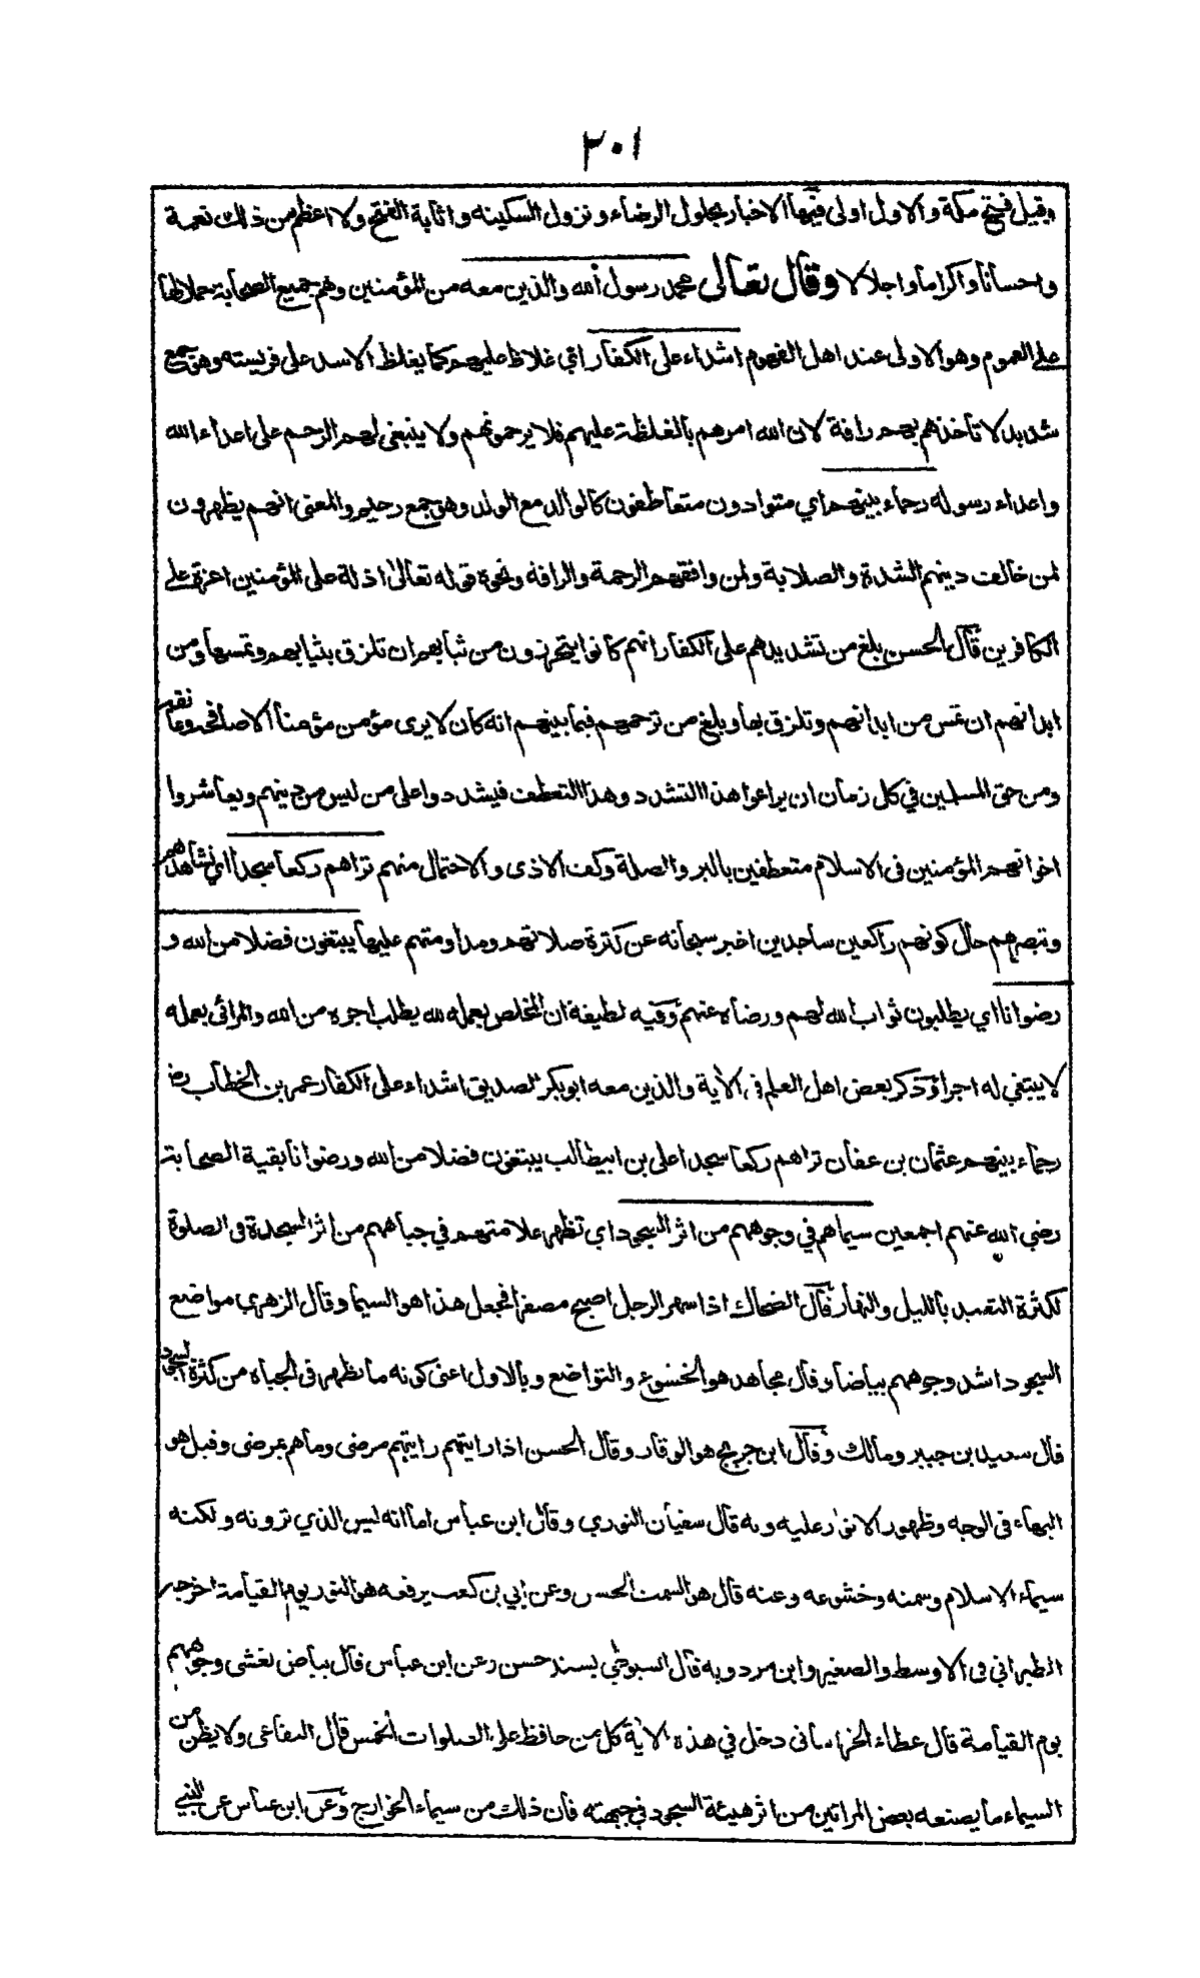 ٣٠١
وقيل فتح مكة والاول اولى فيها الاخبار بحلول الرضاء ونزول السكينه واثابة الفتح ولا اعظم من ذلك نعمة
واحسانا واكراما واجلالا وقال تعالى محمد رسول الله والذين معه من المؤمنين وهم جميع الصحابة حملا لها
على العموم وهو الاولى عند اهل الفهوم اشداء على الكفار اي غلاظ عليهم كما يغلظ الاسد على فريسته وهو جمع
شديد لا تاخذهم بهم رافة لان الله امرهم بالغلظة عليهم فلا يرحمونهم ولا ينبغي لهم الرحم على اعداء الله
واعداء رسوله رحماء بينهم اي متوادون متعاطفون كالوالد مع الولد وهو جمع رحيم والمعنى انهم يظهرون
لمن خالف دينهم الشدة والصلابة ولمن وافقهم الرحمة والرافة ونحوه قوله تعالى اذلة على المؤمنين اعزة على
الكافرين قال الحسن بلغ من تشديدهم على الكفار انهم كانوا يتحرزون من ثيابهم ان تلزق بثيابهم وتمسها ومن
ابدانهم ان تمس من ابدانهم وتلزق بها وبلغ من ترحمهم فيما بينهم انه كان لا يرى مؤمن مؤمنا الا صافحه وعانقه
ومن حق المسلمين في كل زمان ان يراعوا هذا التشدد وهذا التعطف فيشددوا على من ليس من دينهم ويعاشروا
اخوانهم المؤمنين فى الاسلام متعطفين بالبر والصلة وكف الاذى والاحتمال منهم تراهم ركعا سجدا اي تشاهدهم
وتبصرهم حال كونهم راكعين ساجدين اخبر سبحانه عن كثرة صلاتهم ومداومتهم عليها يبتغون فضلا من الله و
رضوانا اي يطلبون ثواب الله لهم ورضاه عنهم وفيه لطيفة ان المخلص بعمله لله يطلب اجره من الله والمرائى بعمله
لا يبتغي له اجرا وذكر بعض اهل العلم في الاية والذين معه ابوبكر الصديق اشداء على الكفار عمر بن الخطاب رض
رحماء بينهم عثمان بن عفان تراهم ركعا سجدا على بن ابيطالب يبتغون فضلا من الله ورضوانا بقية الصحابة
رضي الله عنهم اجمعين سيماهم في وجوههم من اثر السجود اي تظهر علامتهم في جباههم من اثر السجدة فى الصلوة
لكثرة التعبد بالليل والنهار قال الضحاك اذا سهر الرجل اصبح مصفرا فجعل هذا هو السيما وقال الزهري مواضع
السجود اشد وجوههم بياضا وقال مجاهد هو الخشوع والتواضع وبالاول اعنى كونه ما يظهر فى الجباه من كثرة السجود
قال سعيد بن جبير ومالك وقال ابن جريج هو الوقار وقال الحسن اذا رايتهم رايتهم مرضى وما هم بمرضى وقيل هو
البهاء فى الوجه وظهور الانوار عليه وبه قال سفيان الثوري وقال ابن عباس اما انه ليس الذي ترونه ولكنه
سيماء الاسلام وسمته وخشوعه وعنه قال هو السمت الحسن وعن ابي بن كعب يرفعه هو النور يوم القيامة اخرجه
الطبراني فى الاوسط والصغير وابن مردويه قال السيوطي بسند حسن وعن ابن عباس قال بياض يغشى وجوههم
يوم القيامة قال عطاء الخراسانى دخل في هذه الاية كل من حافظ على الصلوات الخمس قال البقاعى ولا يظن من
السيماء ما يصنعه بعض المرائين من اثر هيئة السجود في جبهته فان ذلك من سيماء الخوارج وعن ابن عباس عن النبي